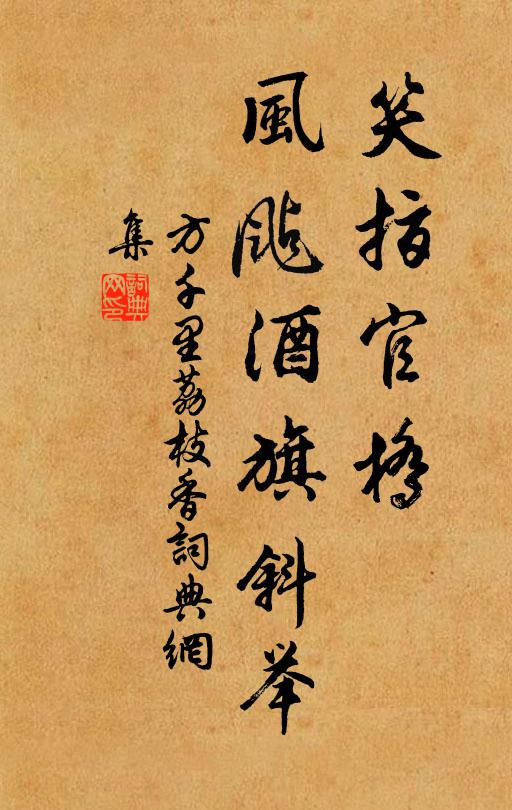 笑指官橋
風颭酒旗斜举
方千里荔枝香詞典網
集
詞典
网印